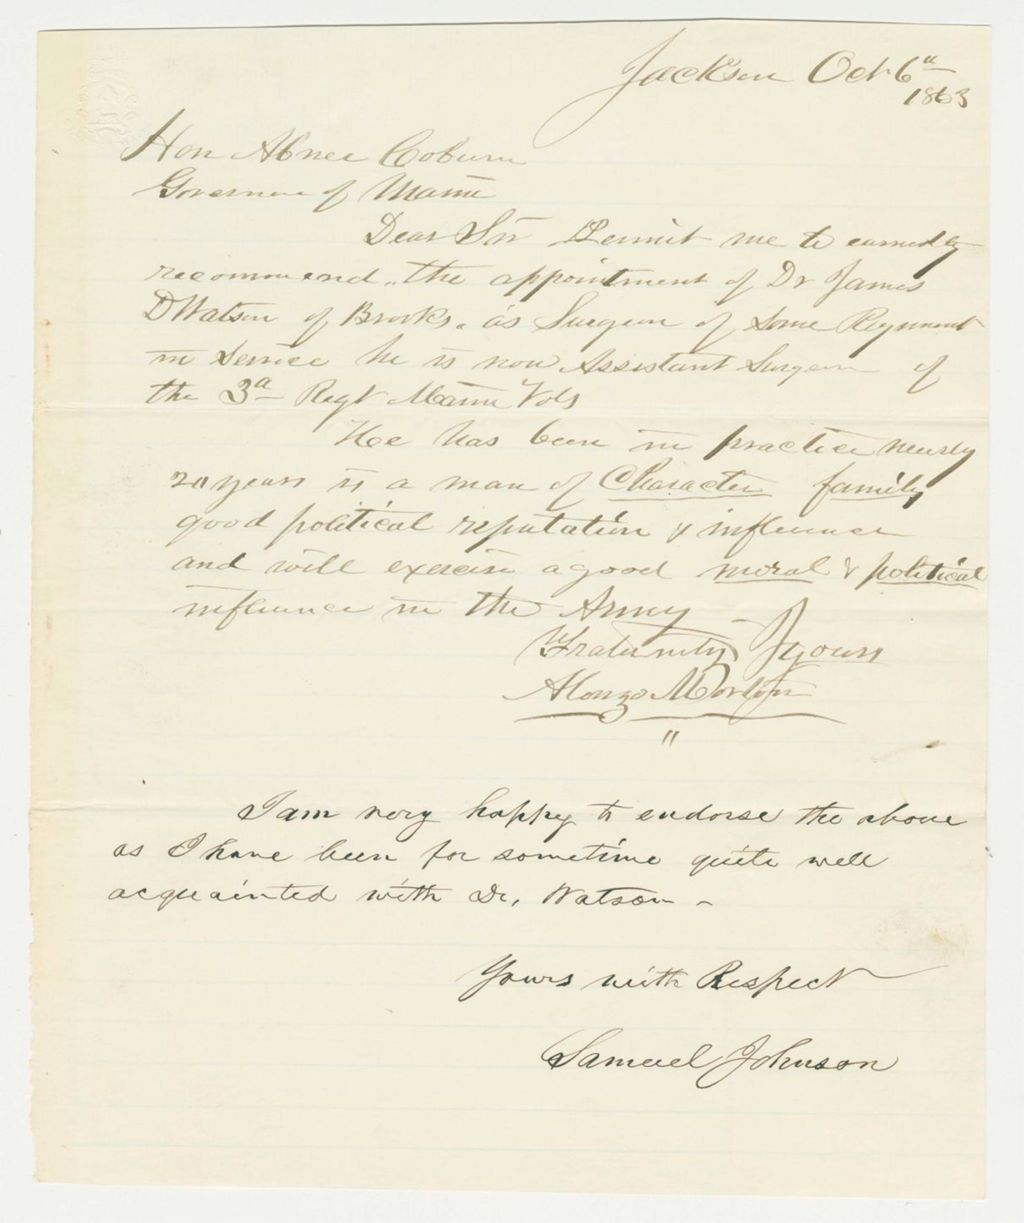 Jackson Oct 6th
1863
Hon Abner Coburn
Governor of Maine
Dear Sir Permit me to earnestly
recommend, the appointment of Dr James
D Watson of Brooks. as Surgeon of some Regiment
in service he is now Assistant Surgeon of
the 3d Regt Maine Vols
He has been in practice nearly
20 years is a man of Character family
good political reputation & influence
and will exercise a good moral & political
influence in the Army -
Fraternity Yours
Alonzo Morton
"
I am very happy to endorse the above
as I have been for sometime quite well
acquainted with Dr. Watson -
Yours with Respect
Samuel Johnson